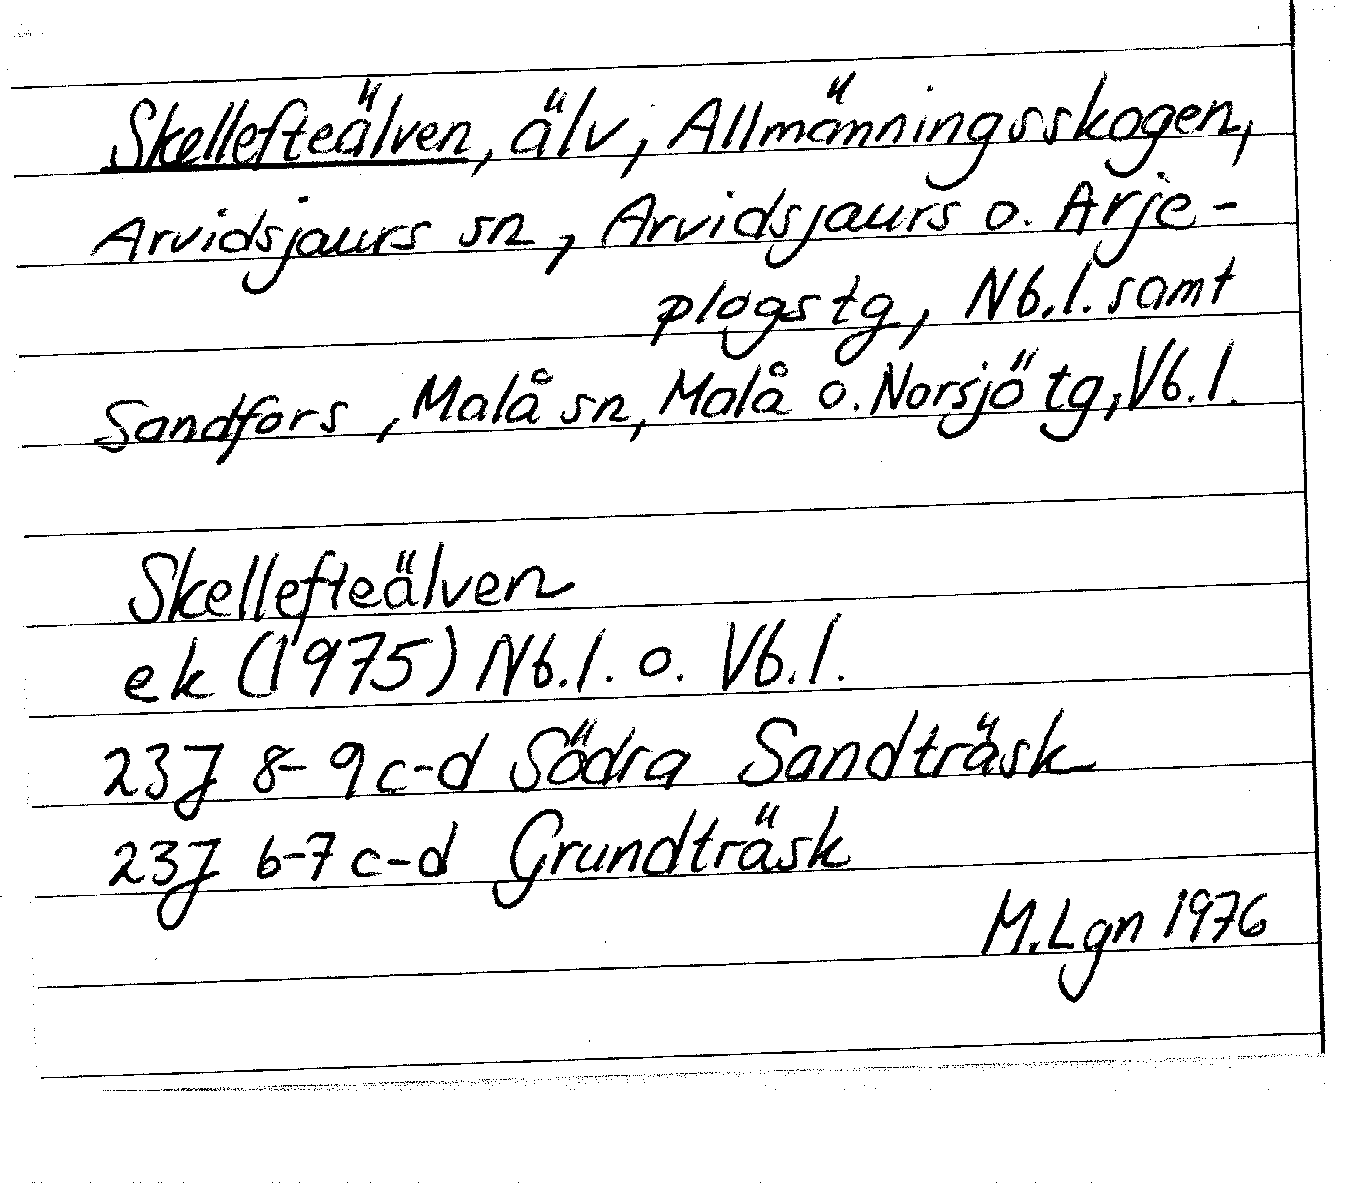 Skellefteälven, älv, Allmänningsskogen,
Arvidsjaurs sn, Arvidsjaurs o. Arje-
plogs tg, Nb.l. samt
Sandfors, Malå sn, Malå o. Norsjö tg, Vb.l.
Skellefteälven
ek (1975) Nb.l. o. Vb.l.
23J 8-9 c-d Södra Sandträsk
23J 6-7 c-d Grundträsk
M.Lgn 1976